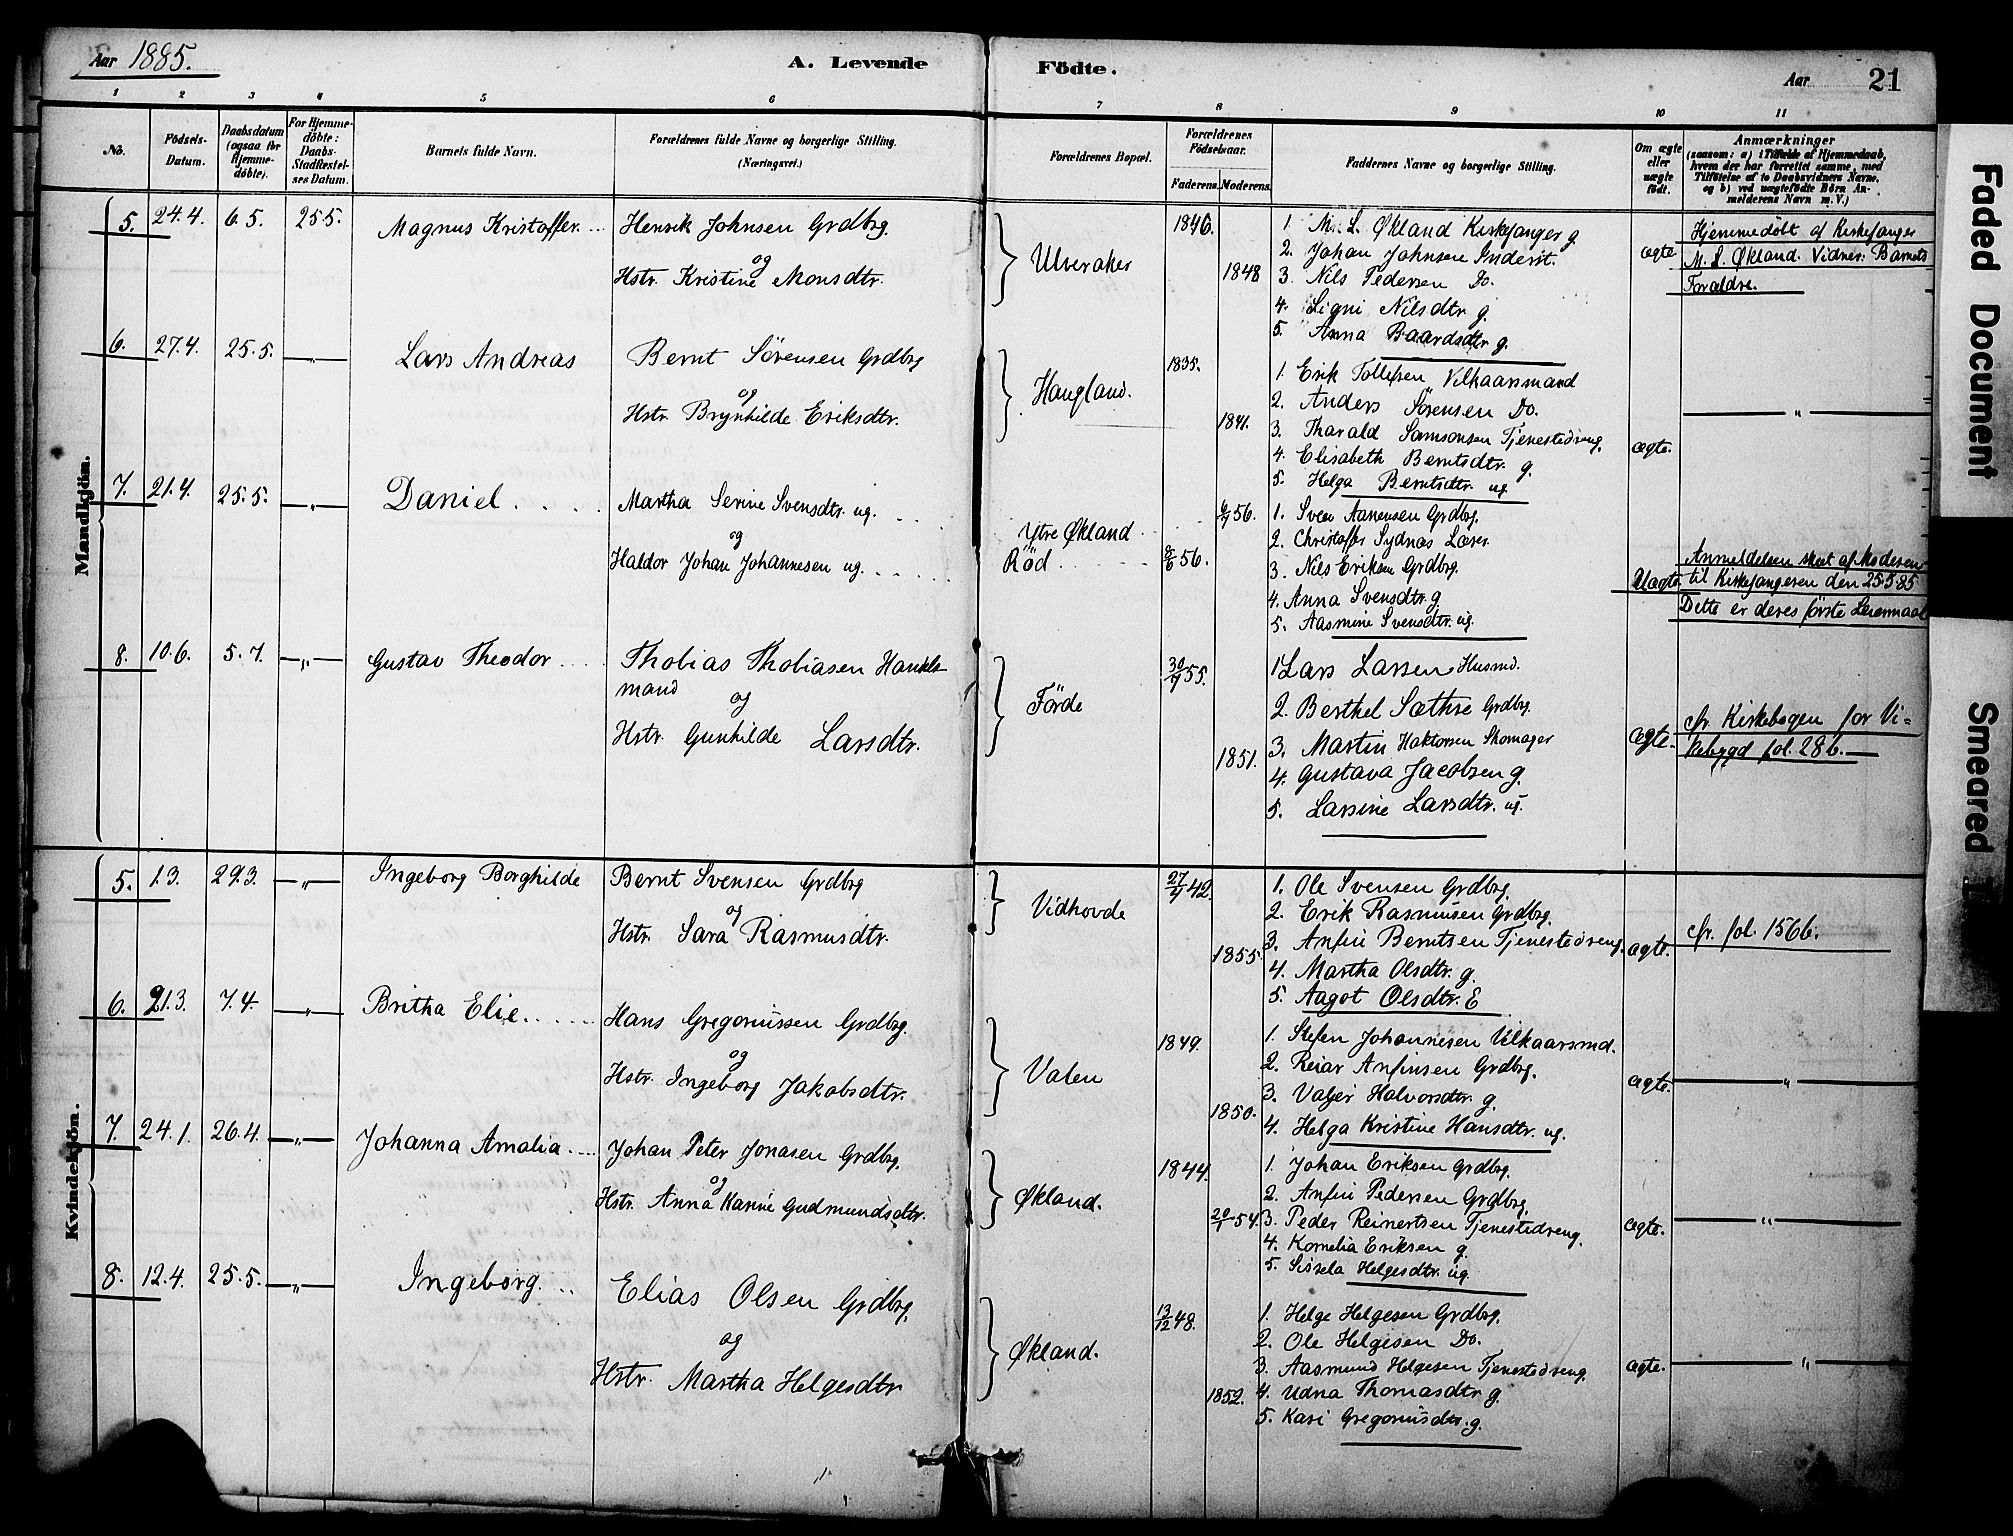 Aar 1885.
A. Levende Födte.
Aar 21
1 2 3 4 5 6 7 8 9 10 11
No.
Födsels-
Datum.
Daabsdatum
(ogsaa for
Hjemme-
döbte).
For Hjemme-
döbte:
Daabs-
Stadfæstel-
ses Datum.
Barnets fulde Navn.
Forældrenes fulde Navne og borgerlige Stilling.
(Næringsvei.)
Forældrenes Bopæl.
Forældrenes
Födselsaar.
Faderens. Moderens.
Faddernes Navne og borgerlige Stilling.
Om ægte
eller
uægte
födt.
Anmærkninger
(saasom: a) i Tilfælde af Hjemmedaab,
hvem der har forrettet samme, med
Tilföielse af to Daabsvidners Navne,
og b) ved uægtefödte Börn An-
melderens Navn m. V.)
Mandkjön.
5. 24.4. 6.5. 25.5. Magnus Kristoffer
Henrik Johnsen Grdbrg.
og
Hstr. Kristine Monsdtr.
Ulveraker
1846.
1848
1. M. L. Økland Kirkesanger g.
2. Johan Johnsen Inderst.
3. Nils Pedersen Do.
4. Signi Nilsdtr g.
5. Anna Baardsdtr g.
ægte
Hjemmedöbt af Kirkesanger
M. L. Økland. Vidner: Barnets
Forældre.
6. 27.4. 25.5. " Lars Andreas
Bernt Sørensen Grdbrg
og
Hstr. Brynhilde Eriksdtr.
Haugland.
1835.
1841.
1. Erik Tollefsen Vilkaarsmand
2. Anders Sørensen Do.
3. Tharald Samsonsen Tjenestedreng.
4. Elisabeth Berntsdtr. g.
5. Helga Berntsdtr. ug.
ægte.
"
7. 21.4. 25.5. " Daniel
Martha Serine Svensdtr. ug.
og
Haldor Johan Johannesen ug.
Ytre Økland
Röd
6/7 56.
8/6 56.
1. Sven Aanensen Grdbrg.
2. Christoffer Sydnæs Lærer
3. Nils Eriksen Grdbrg.
4. Anna Svensdtr. g.
5. Aasmine Svensdtr. ug.
Uægte
Anmeldelsen skeet af Moderen
til Kirkesangeren den 25-5-85
Dette er deres første Leiermaal
8. 10.6. 5.7. " Gustav Theodor
Thobias Thobiasen Handels-
mand
og
Hstr. Gunhilde Larsdtr.
Förde
30/7 55.
1851.
1. Lars Larsen Husmd.
2. Berthel Sæthre Grdbrg.
3. Martin Haktorsen Skomager
4. Gustava Jacobsen g.
5. Larsine Larsdtr. ug.
ægte.
cfr Kirkebogen for Vi-
kebygd fol. 28 6.
Kvindekjön.
5. 1.3. 29.3. " Ingeborg Borghilde
Bernt Svensen Grdbrg
og
Hstr. Sara Rasmusdtr.
Vidhovde
27/4 42.
1855.
1. Ole Svensen Grdbrg.
2. Erik Rasmusen Grdbrg.
3. Anfin Berntsen Tjenestedreng.
4. Martha Olsdtr. g.
5. Aagot Olsdtr. E
ægte.
cfr. fol. 156b.
6. 21.3. 7.4. " Britha Elie
Hans Gregoriussen Grdbrg.
og
Hstr. Ingeborg Jakobsdtr.
Valen
1849.
1850.
1. Stefen Johannesen Vilkaarsmd.
2. Reiar Anfinsen Grdbrg.
3. Valjer Halvorsdtr. g.
4. Helga Kristine Hansdtr. ug.
ægte.
"
7. 24.1. 26.4. " Johanna Amalia
Johan Peter Jonasen Grdbrg.
og
Hstr. Anna Karine Gudmundsdtr.
Økland.
1844.
20/1 54.
1. Johan Eriksen Grdbrg.
2. Anfin Pedersen Grdbrg.
3. Peder Reinertsen Tjenestedreng.
4. Kornelia Eriksen g.
5. Sissela Helgesdtr. ug.
ægte.
"
8. 12.4. 25.5. " Ingeborg.
Elias Olsen Grdbrg.
og
Hstr. Martha Helgesdtr
Økland.
13/12 48.
1852.
1. Helge Helgesen Grdbrg.
2. Ole Helgesen Do.
3. Aasmund Helgesen Tjenestedreng.
4. Udna Thomasdtr g.
5. Kari Gregoriusdtr. g.
ægte.
"
Faded Document
Smeared